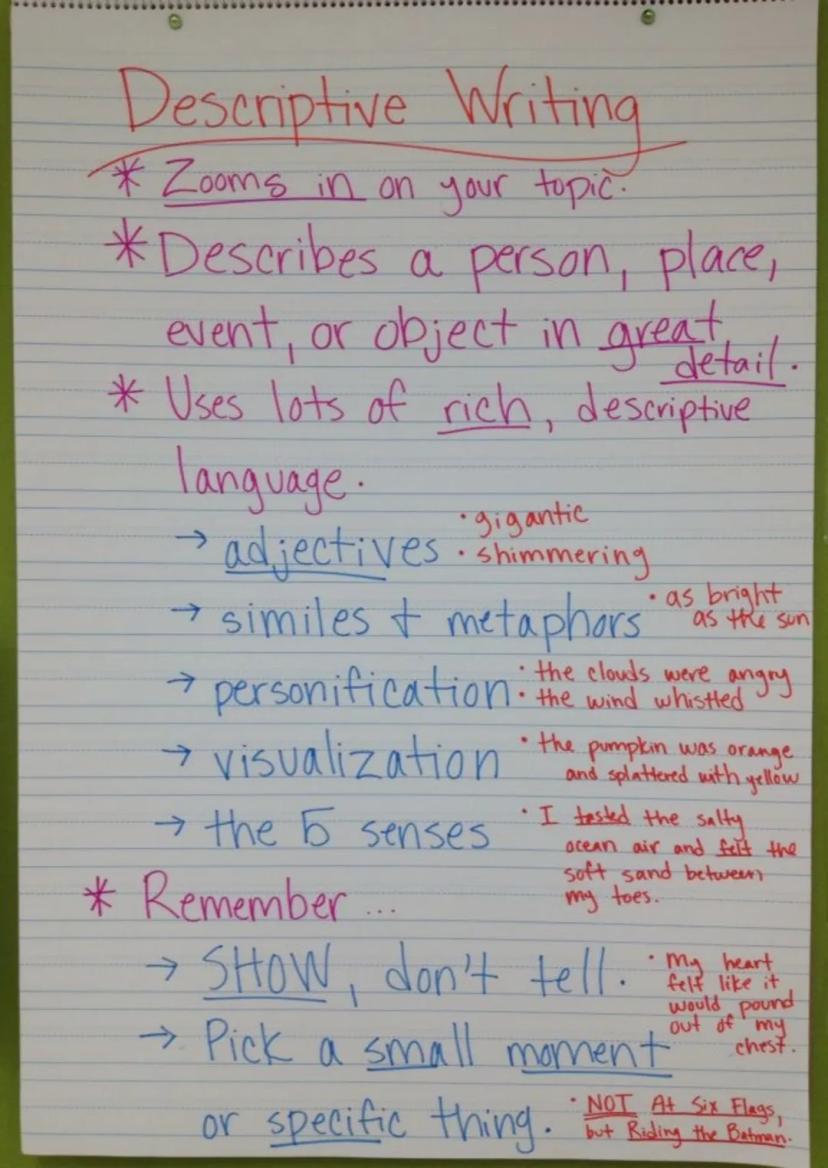 Descriptive Writing
* Zooms in on your topic.
* Describes a person, place,
event, or object in great
detail.
* Uses lots of rich, descriptive
language.
→ adjectives · gigantic
· shimmering
→ similes + metaphors · as bright
as the sun
→ personification · the clouds were angry
· the wind whistled
→ visualization · the pumpkin was orange
and splattered with yellow
→ the 5 senses · I tasted the salty
ocean air and felt the
soft sand between
my toes.
* Remember...
→ SHOW, don't tell. · My heart
felt like it
would pound
out of my
chest.
→ Pick a small moment
or specific thing. · NOT At Six Flags,
but Riding the Batman.